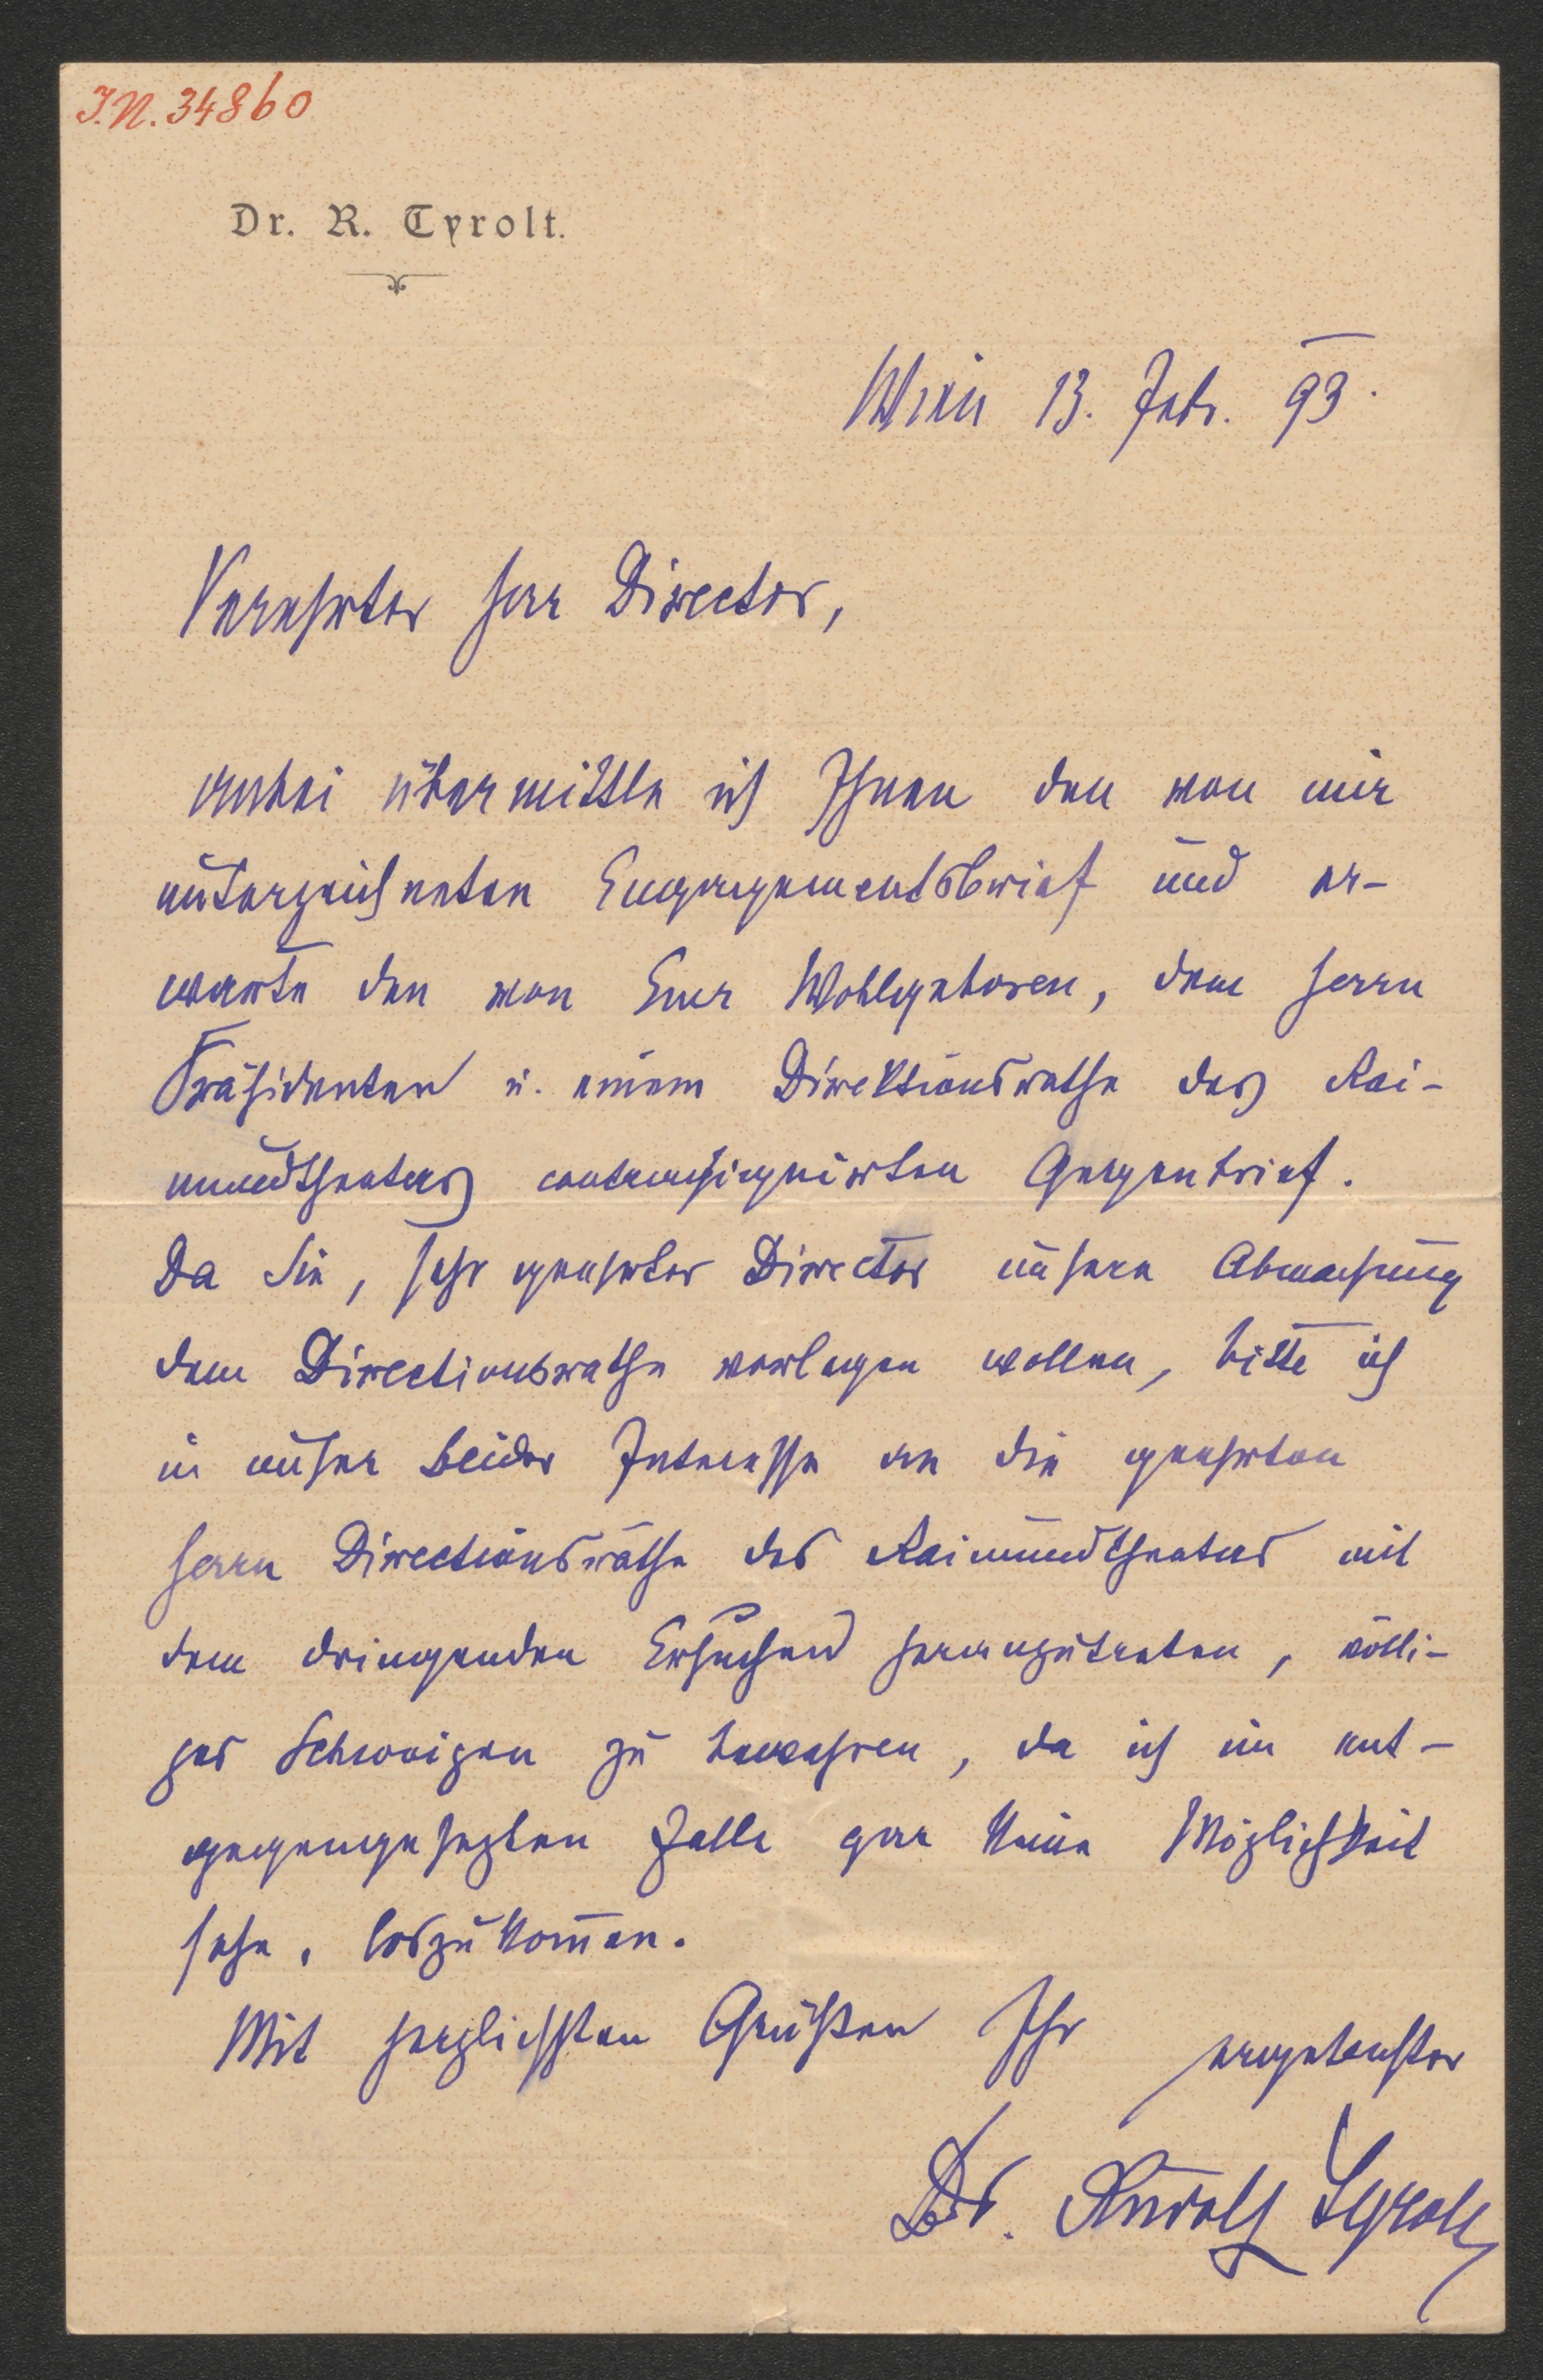 I.N. 34860
Dr. R. Tyrolt.
Wien 13. Febr. 93.
Verehrter Herr Director,
anbei übermittle ich Ihnen den von mir
unterzeichneten Engagementsbrief und er-
warte den von Euer Wohlgeboren, dem Herrn
Präsidenten u. einem Direktionsrathe des Rai-
mundtheaters contrasignirten Gegenbrief.
Da Sie, sehr geehrter Director unsere Abmachung
dem Directionsrathe vorlegen wollen, bitte ich
in unser beider Interesse an die geehrten
Herrn Directionsräthe des Raimundtheaters mit
dem dringenden Ersuchen heranzutreten, völli-
ges Schweigen zu bewahren, da ich im ent-
gegengesezten Falle gar keine Möglichkeit
sehe, loszukom̄en.
Mit herzlichsten Grüßen Ihr
ergebenster
Dr. Rudolf Tyrolt